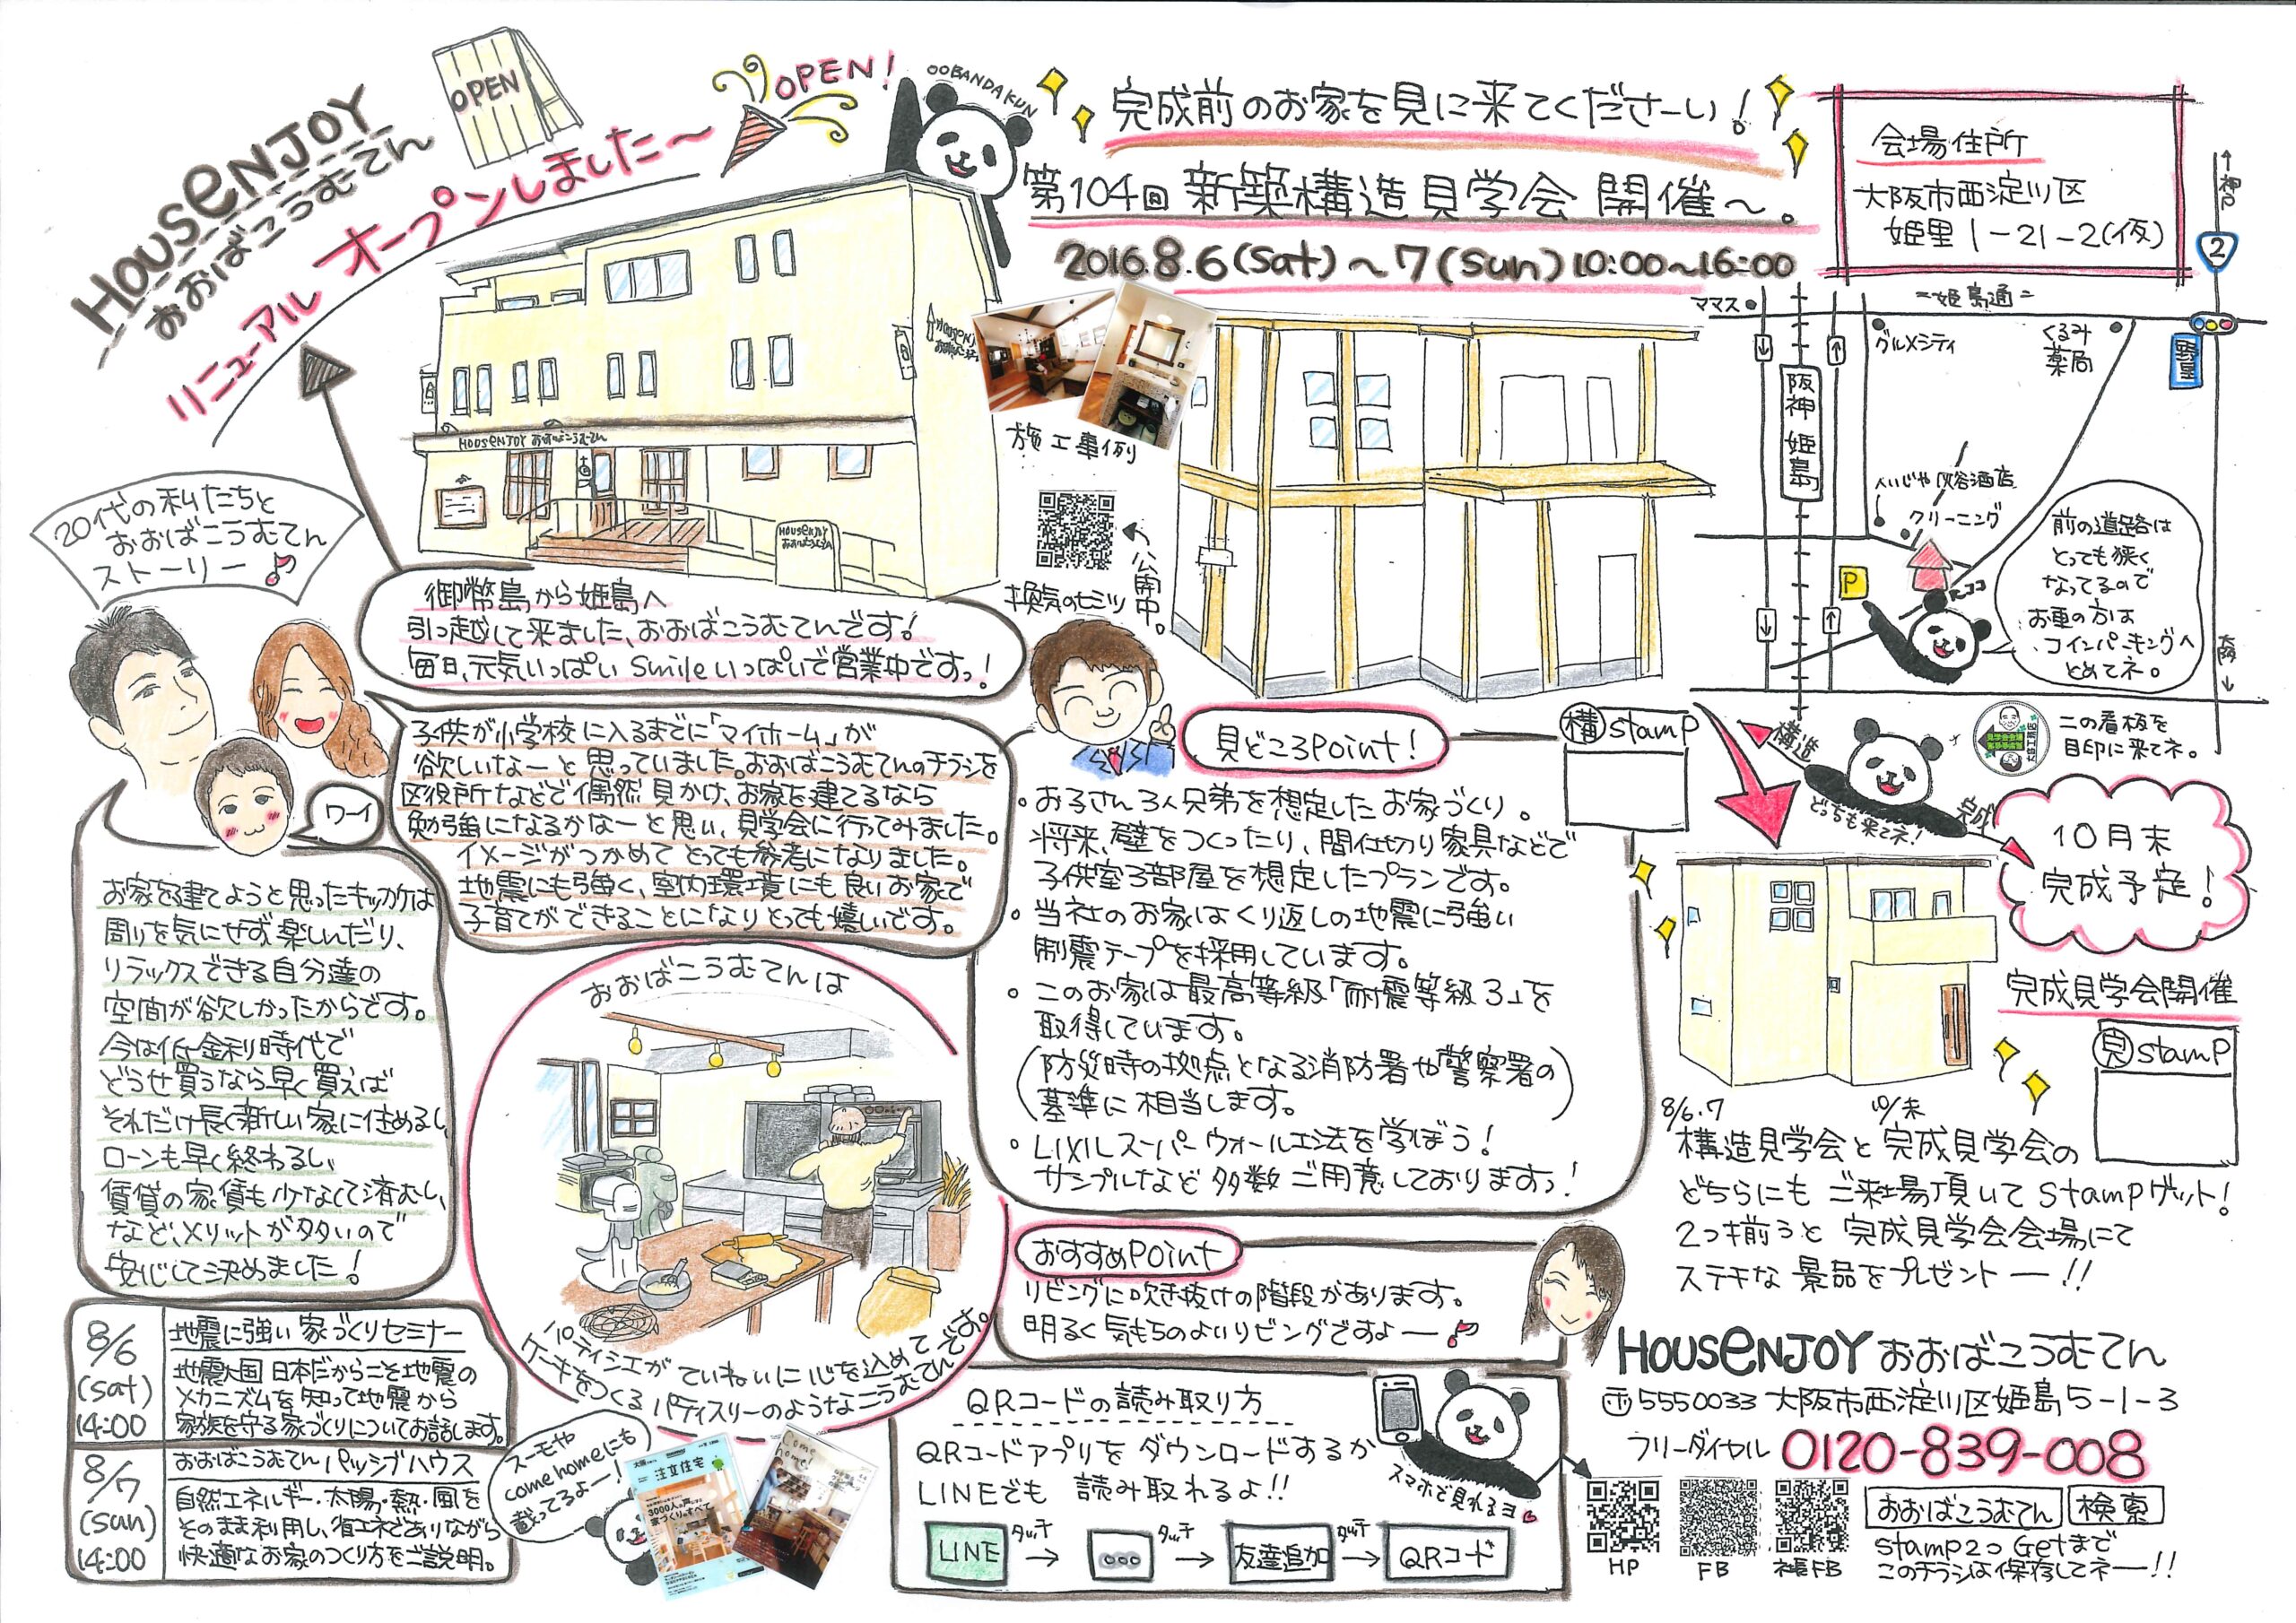 HOUSENJOY
おおばこうむてん
OPEN
リニューアルオープンしました～
OPEN!
OOBANDAKUN
完成前のお家を見に来てくださーい!
第104回 新築構造見学会 開催～。
2016.8.6(Sat)～7(Sun)10:00～16:00
会場住所
大阪市西淀川区
姫里1-21-2(仮)
HOUSENJOY おおばこうむてん
HOUSENJOY
おおばこうむてん
施工事例
換気のヒミツ
公開中。
↑神戸
2
ママス
=姫島通=
グルメシティ
くるみ
薬局
野里
阪神 姫島
クリーニング
P
ココ
大阪↓
前の道路は
とっても狭く
なってるので
お車の方は
コインパーキングへ
とめてネ。
この看板を
目印に来てネ。
20代の私たちと
おおばこうむてん
ストーリー♪
御幣島から姫島へ
引っ越して来ました、おおばこうむてんです!
毎日、元気いっぱい Smileいっぱいで営業中ですっ!
子供が小学校に入るまでに「マイホーム」が
欲しいなーと思っていました。おおばこうむてんのチラシを
区役所などで偶然見かけ、お家を建てるなら
勉強になるかなーと思い、見学会に行ってみました。
イメージがつかめて とっても参考になりました。
地震にも強く、室内環境にも良いお家で
子育てができることになりとっても嬉しいです。
ワーイ
お家を建てようと思ったキッカケは
周りを気にせず楽しんだり、
リラックスできる自分達の
空間が欲しかったからです。
今は低金利時代で
どうせ買うなら早く買えば
それだけ長く新しい家に住めるし、
ローンも早く終わるし、
賃貸の家賃も少なくて済むし、
など、メリットが多いので
安心して決めました!
見どころPoint!
・お子さん3人兄弟を想定したお家づくり。
将来、壁をつくったり、間仕切り家具などで
子供室3部屋を想定したプランです。
・当社のお家はくり返しの地震に強い
制震テープを採用しています。
・このお家は最高等級「耐震等級3」を
取得しています。
(防災時の拠点となる消防署や警察署の
基準に相当します。)
・LIXILスーパーウォール工法を学ぼう!
サンプルなど多数ご用意しておりますっ!
構stamp
構造
どっちも来てネ!
完成
10月末
完成予定!
完成見学会開催
見stamp
8/6.7 10/末
構造見学会と完成見学会の
どちらにもご来場頂いてstampゲット!
2つ揃うと完成見学会会場にて
ステキな景品をプレゼントー!!
おおばこうむてんは
パティシエがていねいに心を込めて
ケーキをつくるパティスリーのようなこうむてんです。
おすすめPoint
リビングに吹き抜けの階段があります。
明るく気もちのよいリビングですよー♪
8/6
(sat)
14:00
地震に強い家づくりセミナー
地震大国 日本だからこそ地震の
メカニズムを知って地震から
家族を守る家づくりについてお話します。
8/7
(sun)
14:00
おおばこうむてん パッシブハウス
自然エネルギー・太陽・熱・風を
そのまま利用し、省エネでありながら
快適なお家のつくり方をご説明。
スーモや
come homeにも
載ってるよー!
注文住宅
3000人の声による
家づくりのすべて
Come
home!
QRコードの読み取り方
QRコードアプリをダウンロードするか
LINEでも 読み取れるよ!!
LINE タッチ→ ○○○ タッチ→ 友達追加 タッチ→ QRコード
スマホで見れるヨ
HOUSENJOY おおばこうむてん
〒5550033 大阪市西淀川区姫島5-1-3
フリーダイヤル 0120-839-008
HP
FB
社長FB
おおばこうむてん 検索
stamp2つ Getまで
このチラシは保存してネー!!